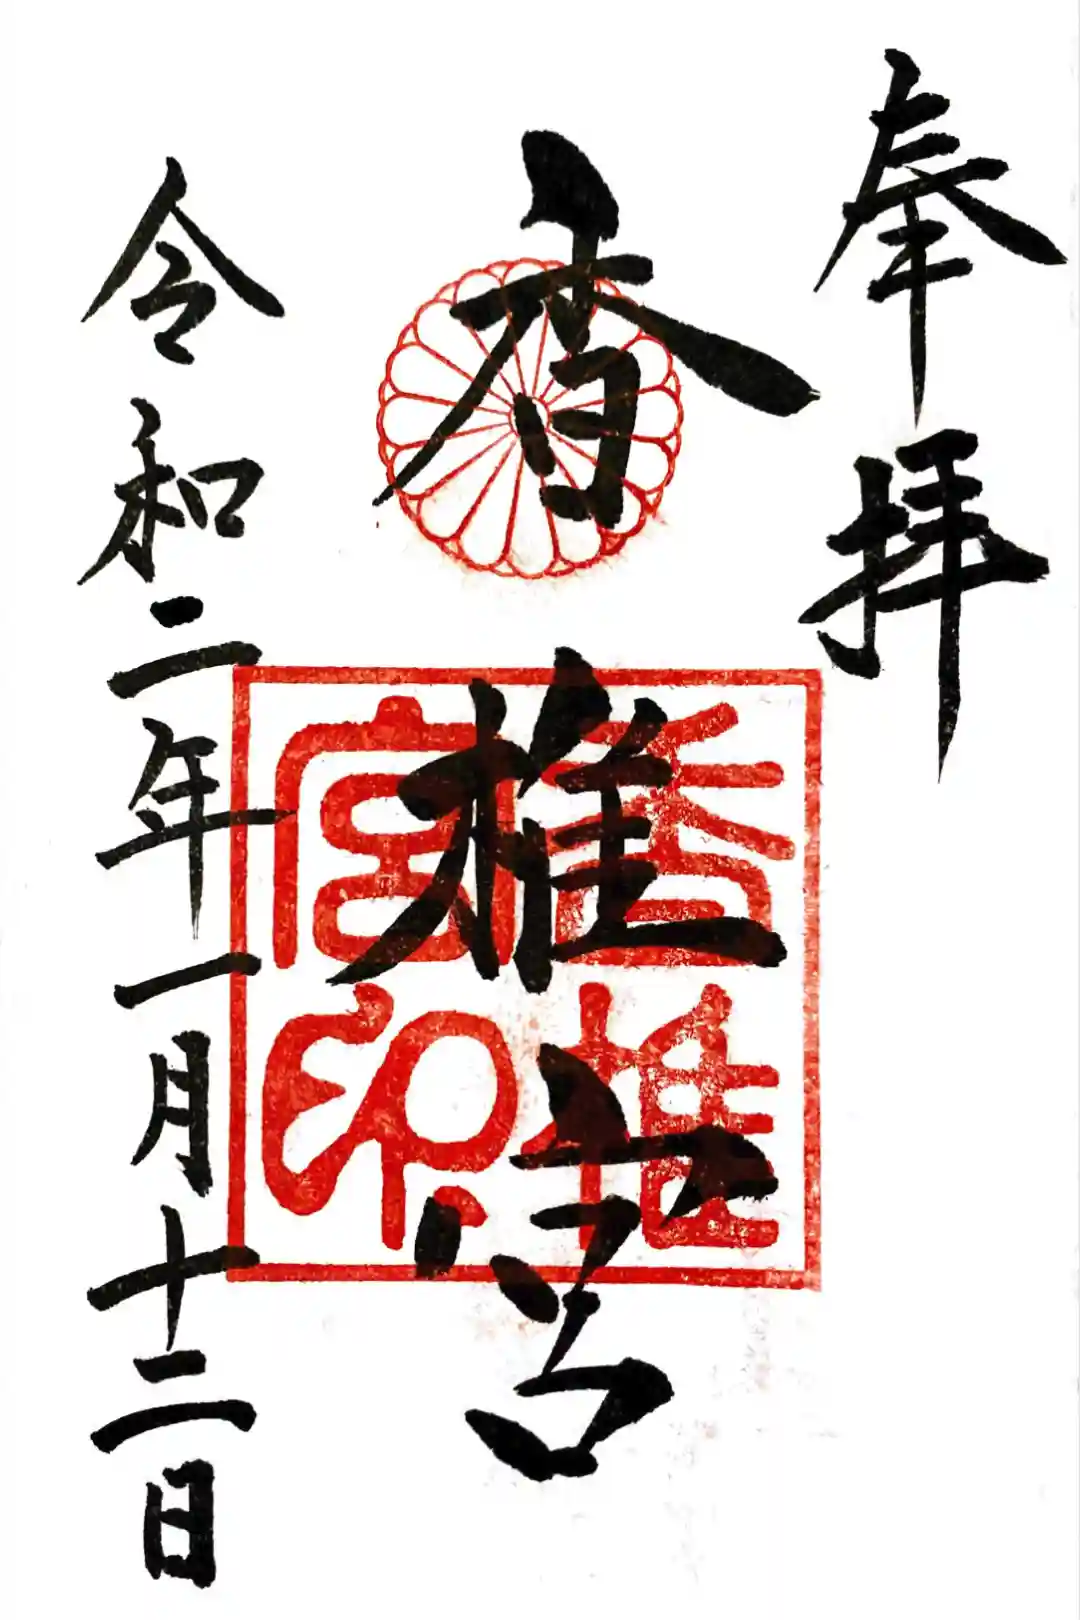 奉拝
香椎宮
香椎宮印
令和二年一月十二日